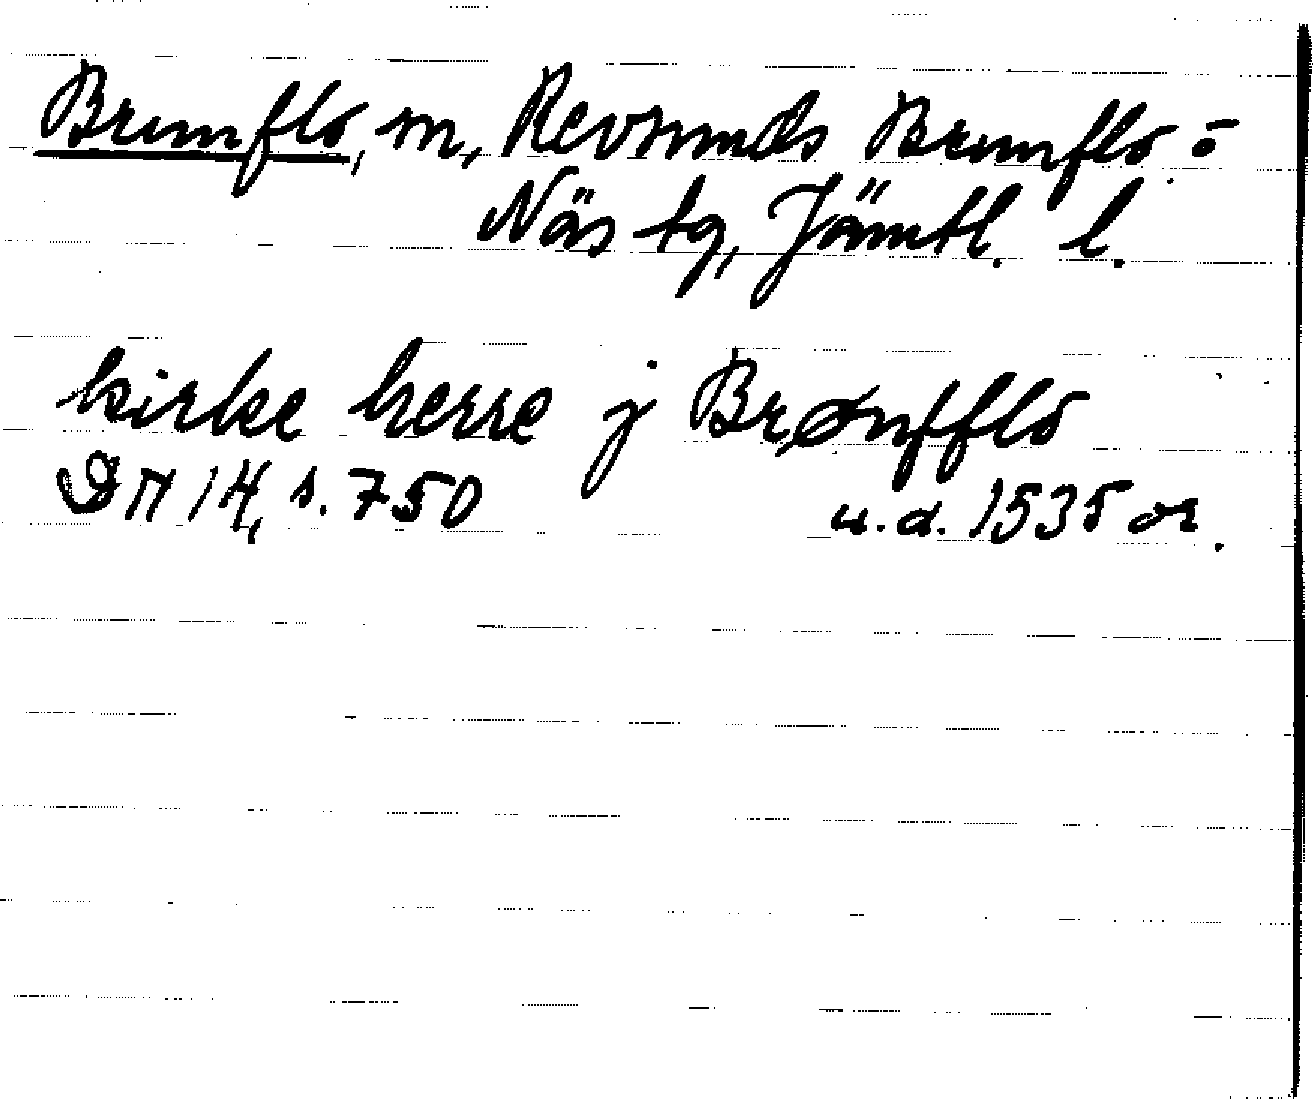 Brunflo, sn, Revsunds Brunflo o
Näs tg, Jämtl. l.
kirke herre j Brønfflo
DN 14, s. 750 u.d. 1535 or.